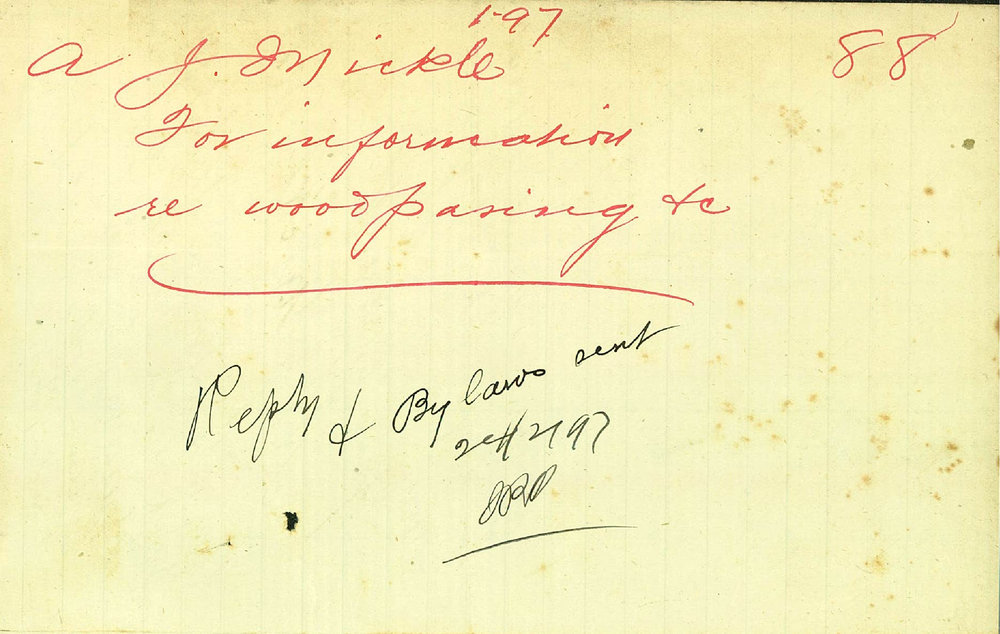 1-97
A J. Mickle 88
For information
re woodpaving &c
Reply & By laws sent
24/2/97